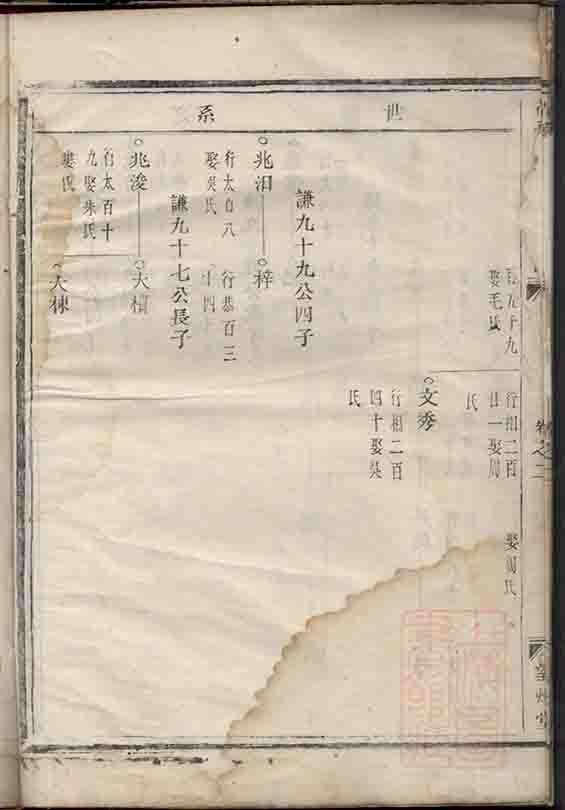 世系
卷之二
娶毛氏
行相二百
廿一娶周
氏
娶周氏
文秀
行相二百
四十娶吳
氏
謙九十九公四子
兆汨
行太百八
娶吳氏
梓
行恭百三
十四
謙九十七公長子
兆浚
行太百十
九娶朱氏
婁氏
大槓
大棟